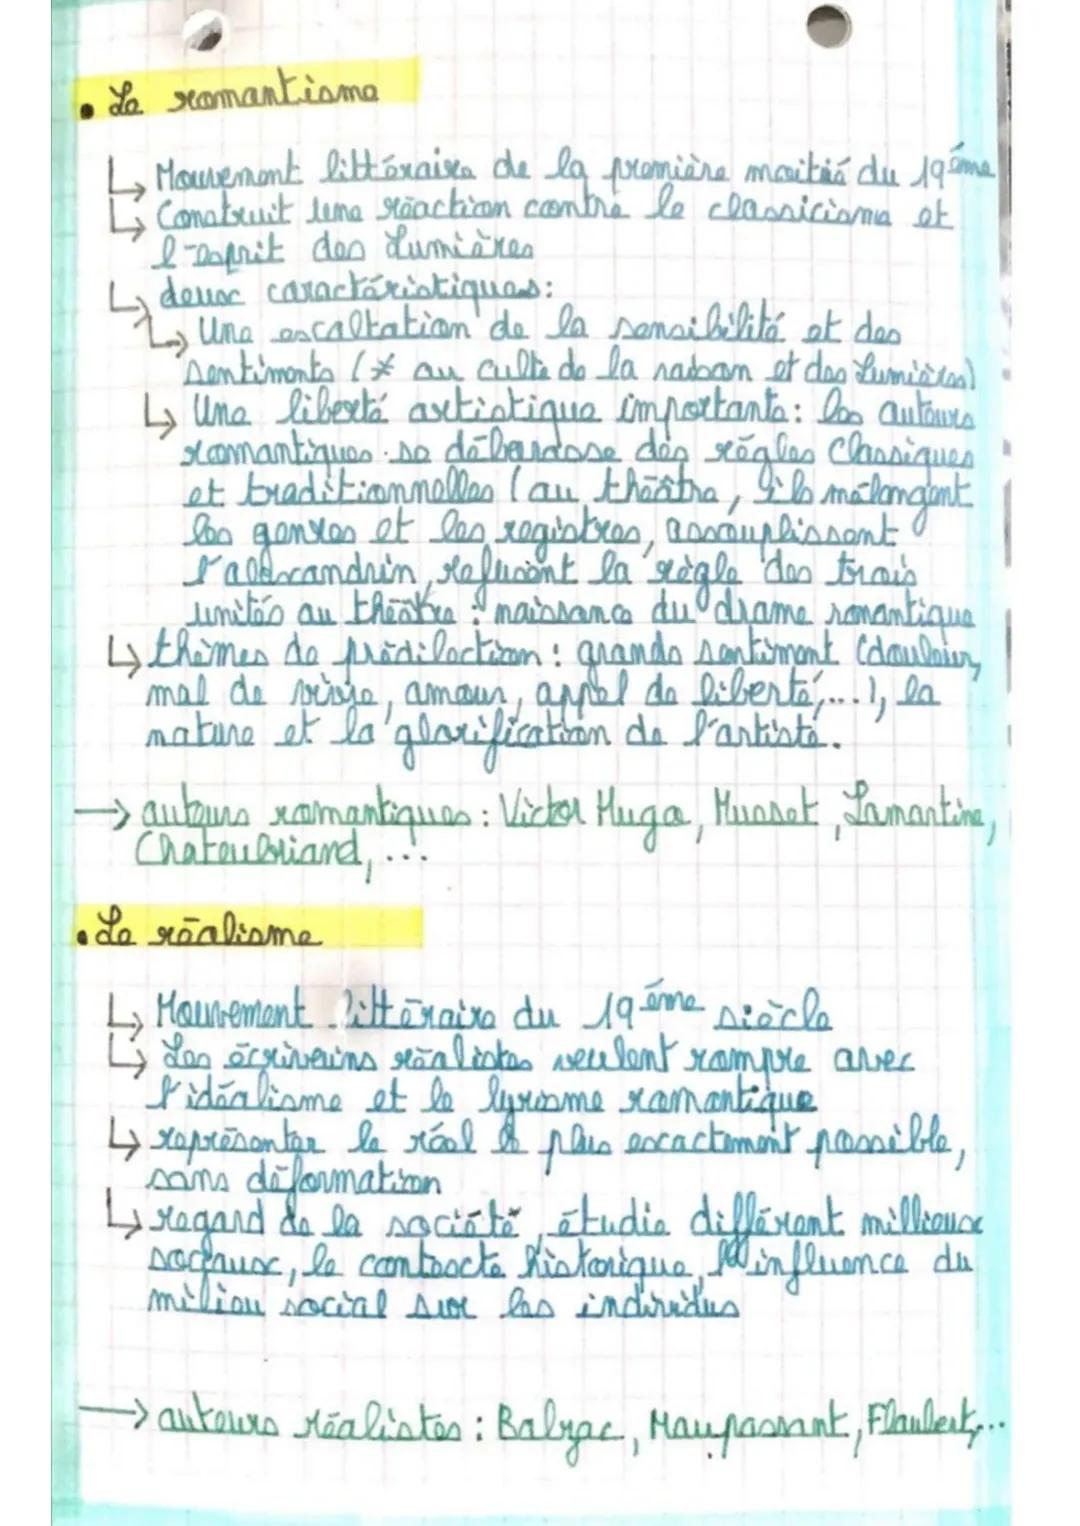 • Le romantisme
↳ Mouvement littéraire de la première moitié du 19ème
↳ Construit une réaction contre le classicisme et
l'esprit des Lumières
↳ deux caractéristiques :
↳ Une exaltation de la sensibilité et des
sentiments (≠ au culte de la raison et des Lumières)
↳ Une liberté artistique importante : les auteurs
romantiques se débarasse des règles classiques
et traditionnelles (au théâtre, ils mélangent
les genres et les registres, assouplissent
l'alexandrin, refusent la règle des trois
unités au théâtre : naissance du drame romantique
↳ thèmes de prédilection : grands sentiment (douleur,
mal de vivre, amour, appel de liberté,...), la
nature et la glorification de l'artiste.
→ auteurs romantiques : Victor Hugo, Musset, Lamartine,
Chateubriand, ...
• Le réalisme
↳ Mouvement littéraire du 19ème siècle
↳ Les écrivains réalistes veulent rompre avec
l'idéalisme et le lyrisme romantique
↳ représenter le réel le plus exactement possible,
sans déformation
↳ regard de la société, étudie différent millieux
sociaux, le contexte historique, l'influence du
milieu social sur les individus
→ auteurs réalistes : Balzac, Maupassant, Flaubert,...